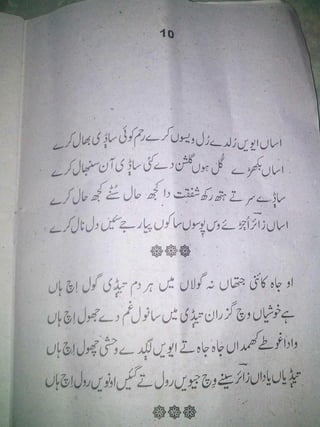 10
اساں ایویں رُلدے رُل ویسوں کرے رحم کوئی ساڈی بھال کرے
اساں بکھڑے گل ہوں گلشن دے کئی ساڈی آن سنبھال کرے
ساڈے سر تے ہتھ رکھ شفقت دا کجھ حال سُنے کجھ حال کرے
اساں زائر اُجڑئے وس پوسوں ساکوں پیار جے سئیں دل نال کرے
او جاہ کائنی جتھاں نہ گولاں میں ہر دم تیڈی گول اِچ ہاں
ہے خوشیاں وچ گزران تیڈی میں سانول غم دے جھول اِچ ہاں
ودا غوطے کھمداں جاہ جاہ تے ایویں لگدے وحشی چھول اِچ ہاں
تیڈیاں یاداں زائر سینے وچ جیویں رول تے گئیں اونویں رول اِچ ہاں